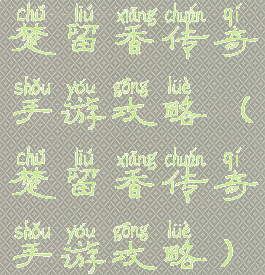 chǔ liú xiāng chuán qí
楚留香传奇
shǒu yóu gōng lüè
手游攻略（
chǔ liú xiāng chuán qí
楚留香传奇
shǒu yóu gōng lüè
手游攻略）